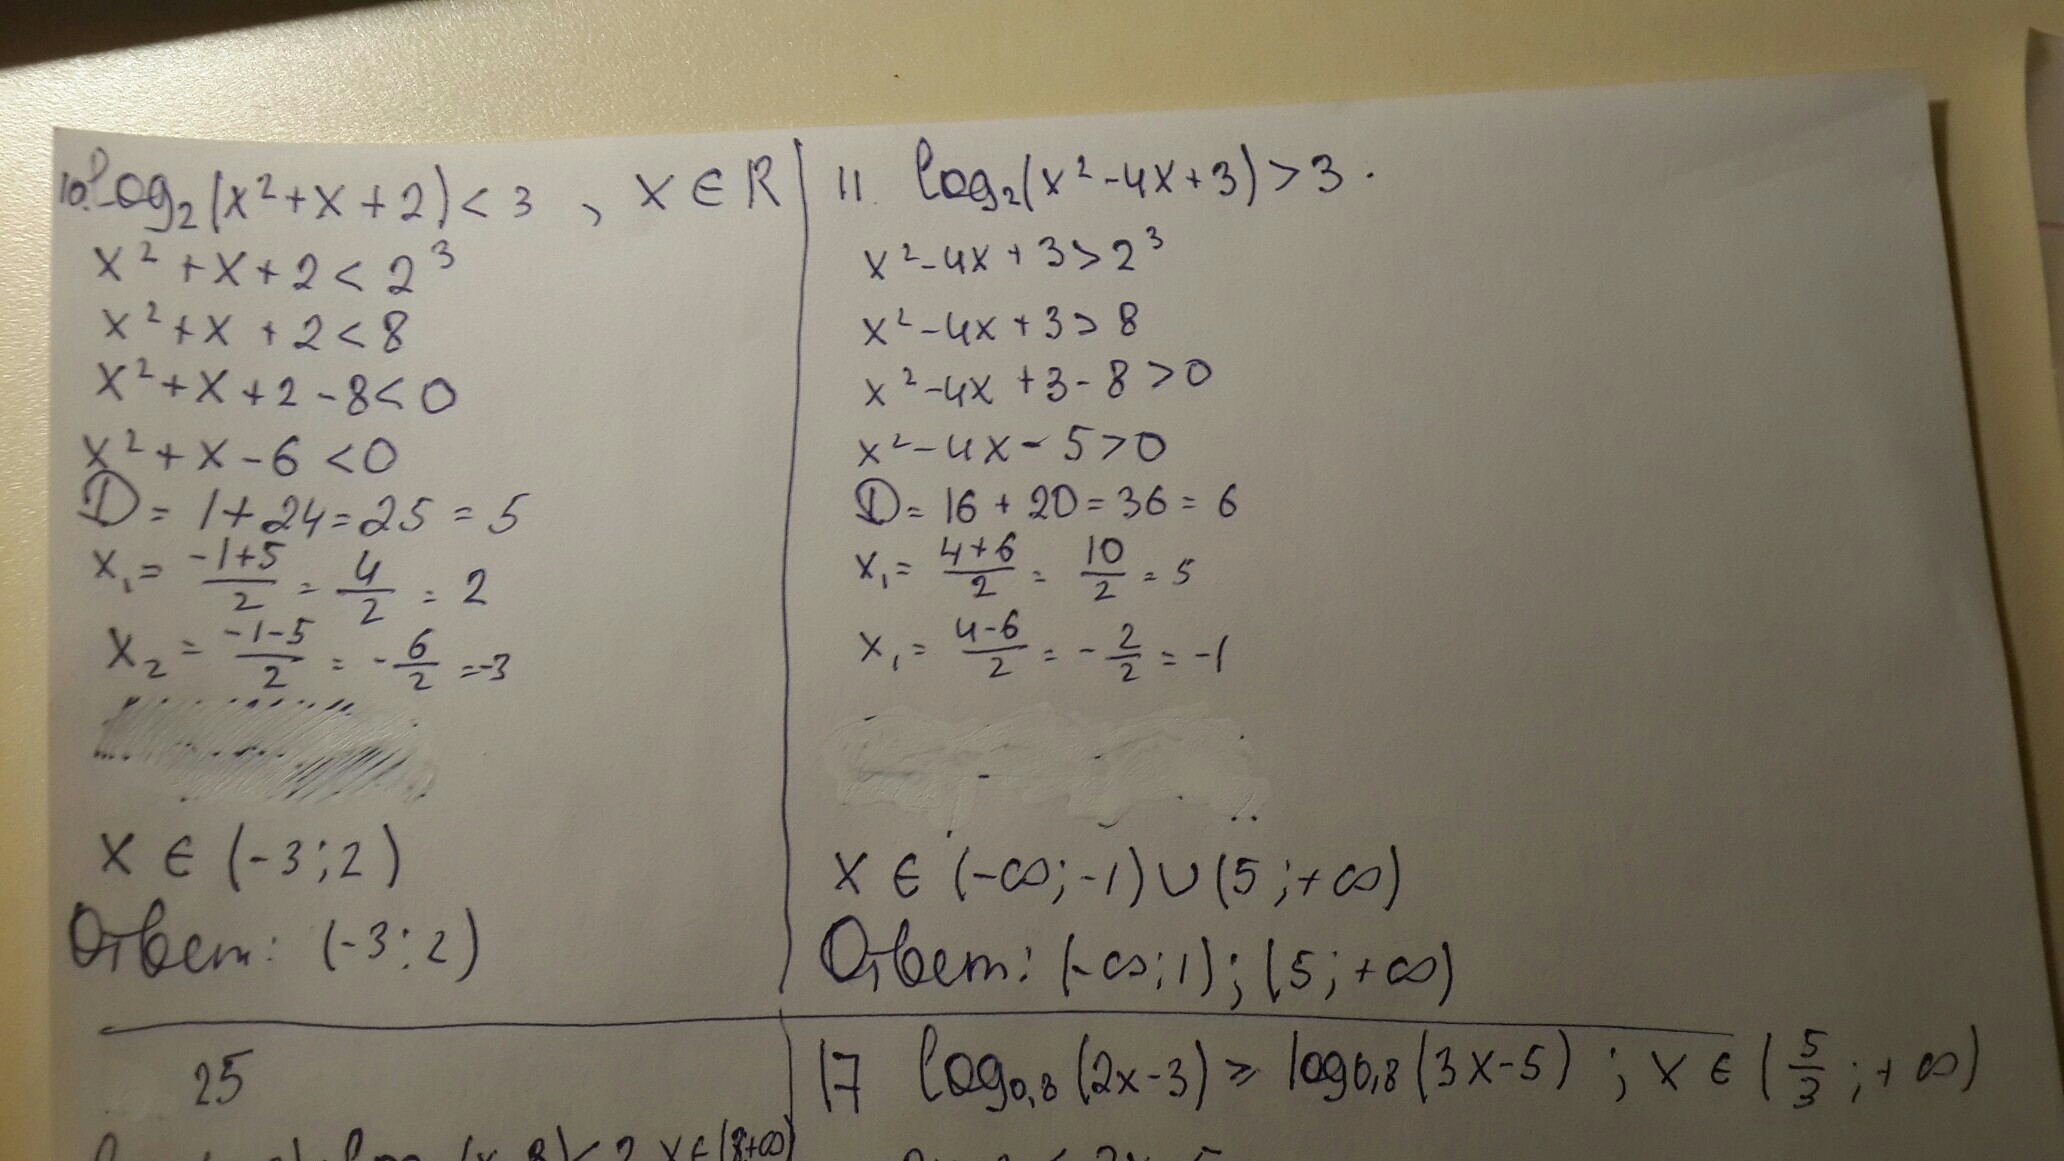 10. log₂(x²+x+2)<3 , x∈R
x²+x+2<2³
x²+x+2<8
x²+x+2-8<0
x²+x-6<0
D=1+24=25=5
x₁=(-1+5)/2=4/2=2
x₂=(-1-5)/2=-6/2=-3
x∈(-3;2)
Ответ: (-3;2)
11. log₂(x²-4x+3)>3.
x²-4x+3>2³
x²-4x+3>8
x²-4x+3-8>0
x²-4x-5>0
D=16+20=36=6
x₁=(4+6)/2=10/2=5
x₁=(4-6)/2=-2/2=-1
x∈(-∞;-1)∪(5;+∞)
Ответ: (-∞;1);(5;+∞)
25
x∈(8+∞)
17 log₀,₈(2x-3)≥log₀,₈(3x-5) ; x∈(5/3;+∞)